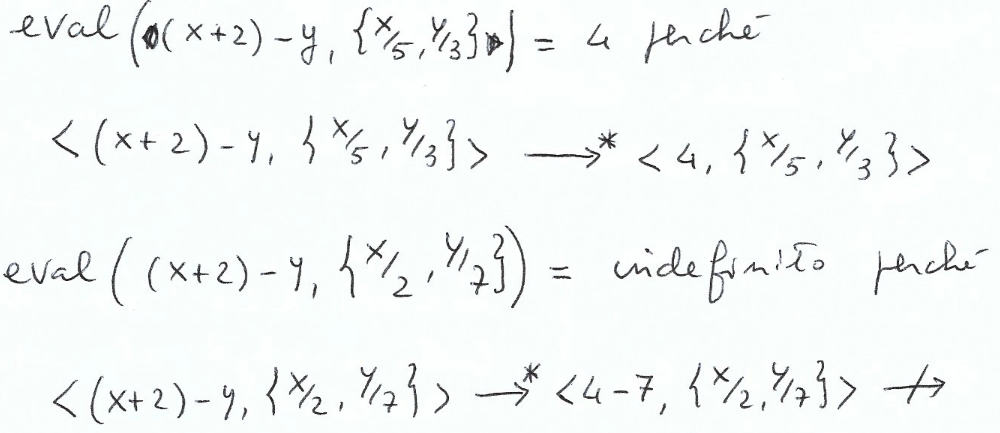 eval ((x+2)-y, {x/5, y/3}) = 4 perché
<(x+2)-y, {x/5, y/3}> →* <4, {x/5, y/3}>
eval ((x+2)-y, {x/2, y/7}) = indefinito perché
<(x+2)-y, {x/2, y/7}> →* <4-7, {x/2, y/7}> ↛